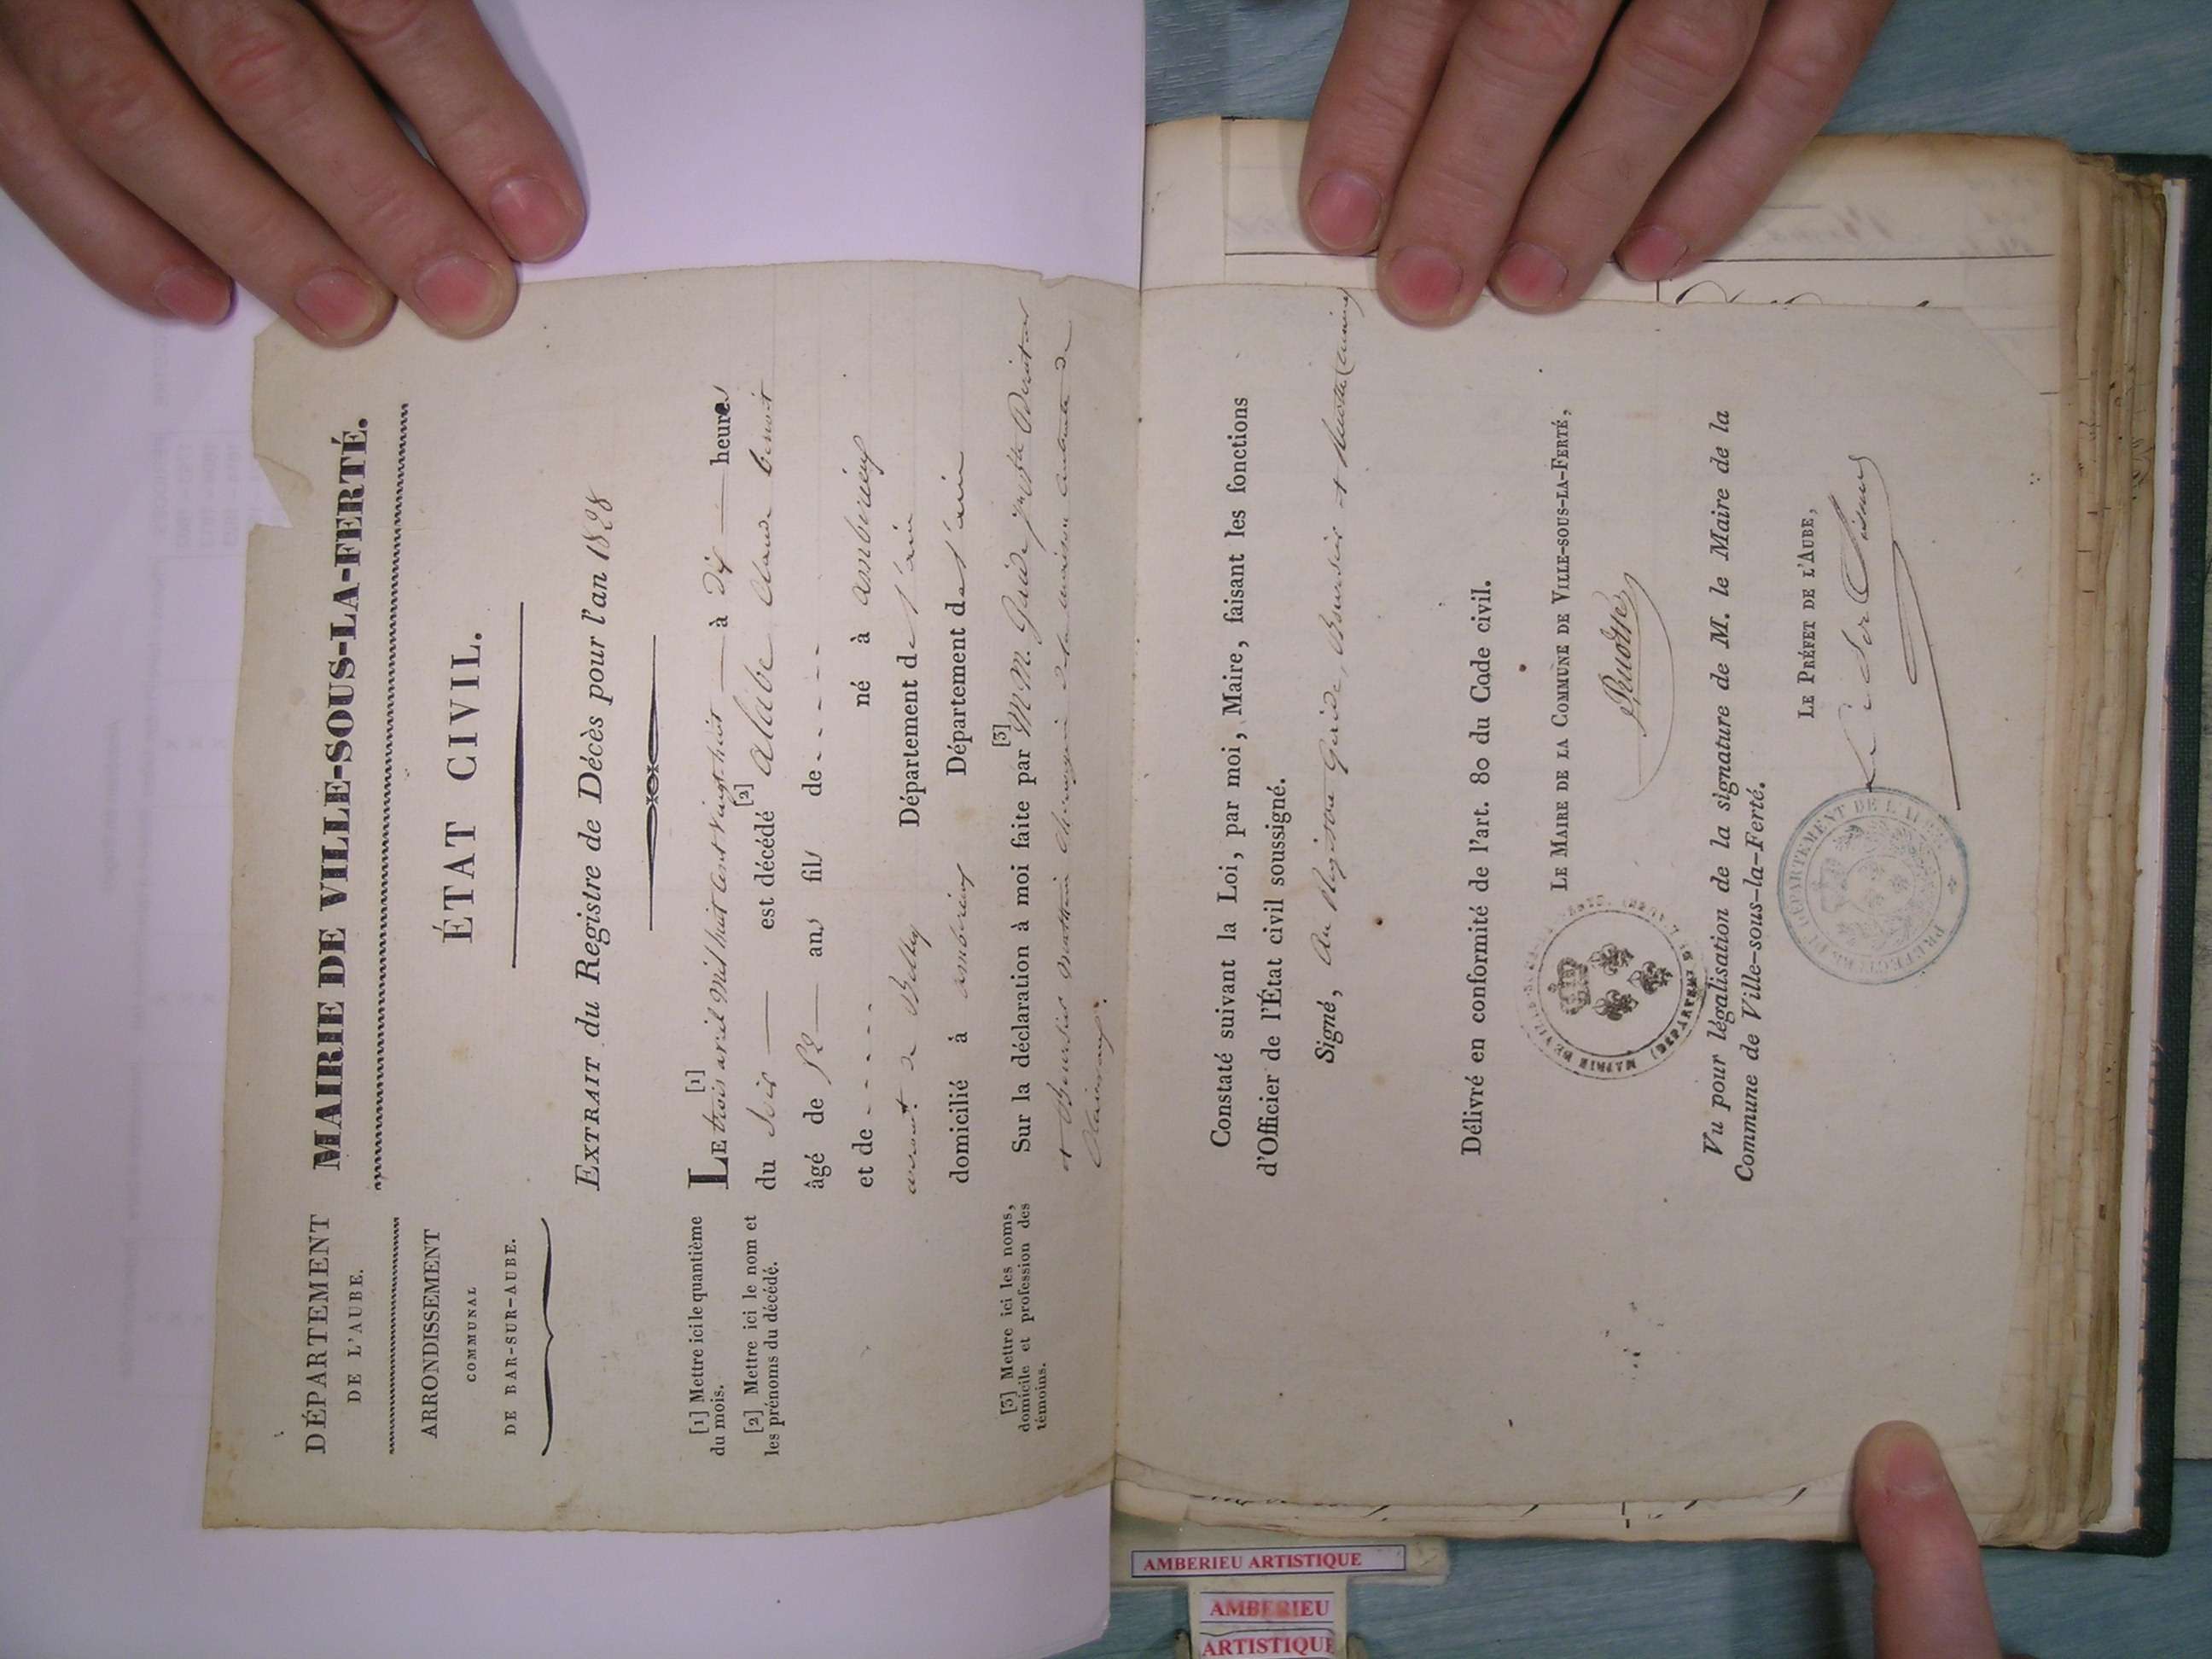 DÉPARTEMENT
DE L'AUBE.
ARRONDISSEMENT
COMMUNAL
DE BAR-SUR-AUBE.
MAIRIE DE VILLE-SOUS-LA-FERTÉ.
ÉTAT CIVIL.
EXTRAIT du Registre de Décès pour l'an 1828
[1] Mettre ici le quantième
du mois.
[2] Mettre ici le nom et
les prénoms du décédé.
[3] Mettre ici les noms,
domicile et profession des
témoins.
LE [1] trois avril mil huit cent vingt huit à dix heures
du soir est décédé [2] alabe Claude benoit
âgé de 52 ans fils de
et de né à amberieux
arront de Belley Département de l'ain
domicilié à amberieux Département de l'ain
Sur la déclaration à moi faite par [3] M.M. Gride
et Boursier de la maison centrale de
Clairvaux.
Constaté suivant la Loi, par moi, Maire, faisant les fonctions
d'Officier de l'État civil soussigné.
Signé, au Registre Gride, Boursier et
Délivré en conformité de l'art. 80 du Code civil.
LE MAIRE DE LA COMMUNE DE VILLE-SOUS-LA-FERTÉ,
MAIRIE DE VILLE-SOUS-LA-FERTÉ
Vu pour légalisation de la signature de M. le Maire de la
Commune de Ville-sous-la-Ferté.
LE PRÉFET DE L'AUBE,
PREFECTURE DU DÉPARTEMENT DE L'AUBE
AMBERIEU ARTISTIQUE
AMBERIEU
ARTISTIQUE